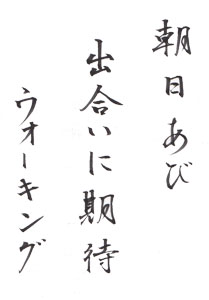 朝日あび
出合いに期待
ウオーキング